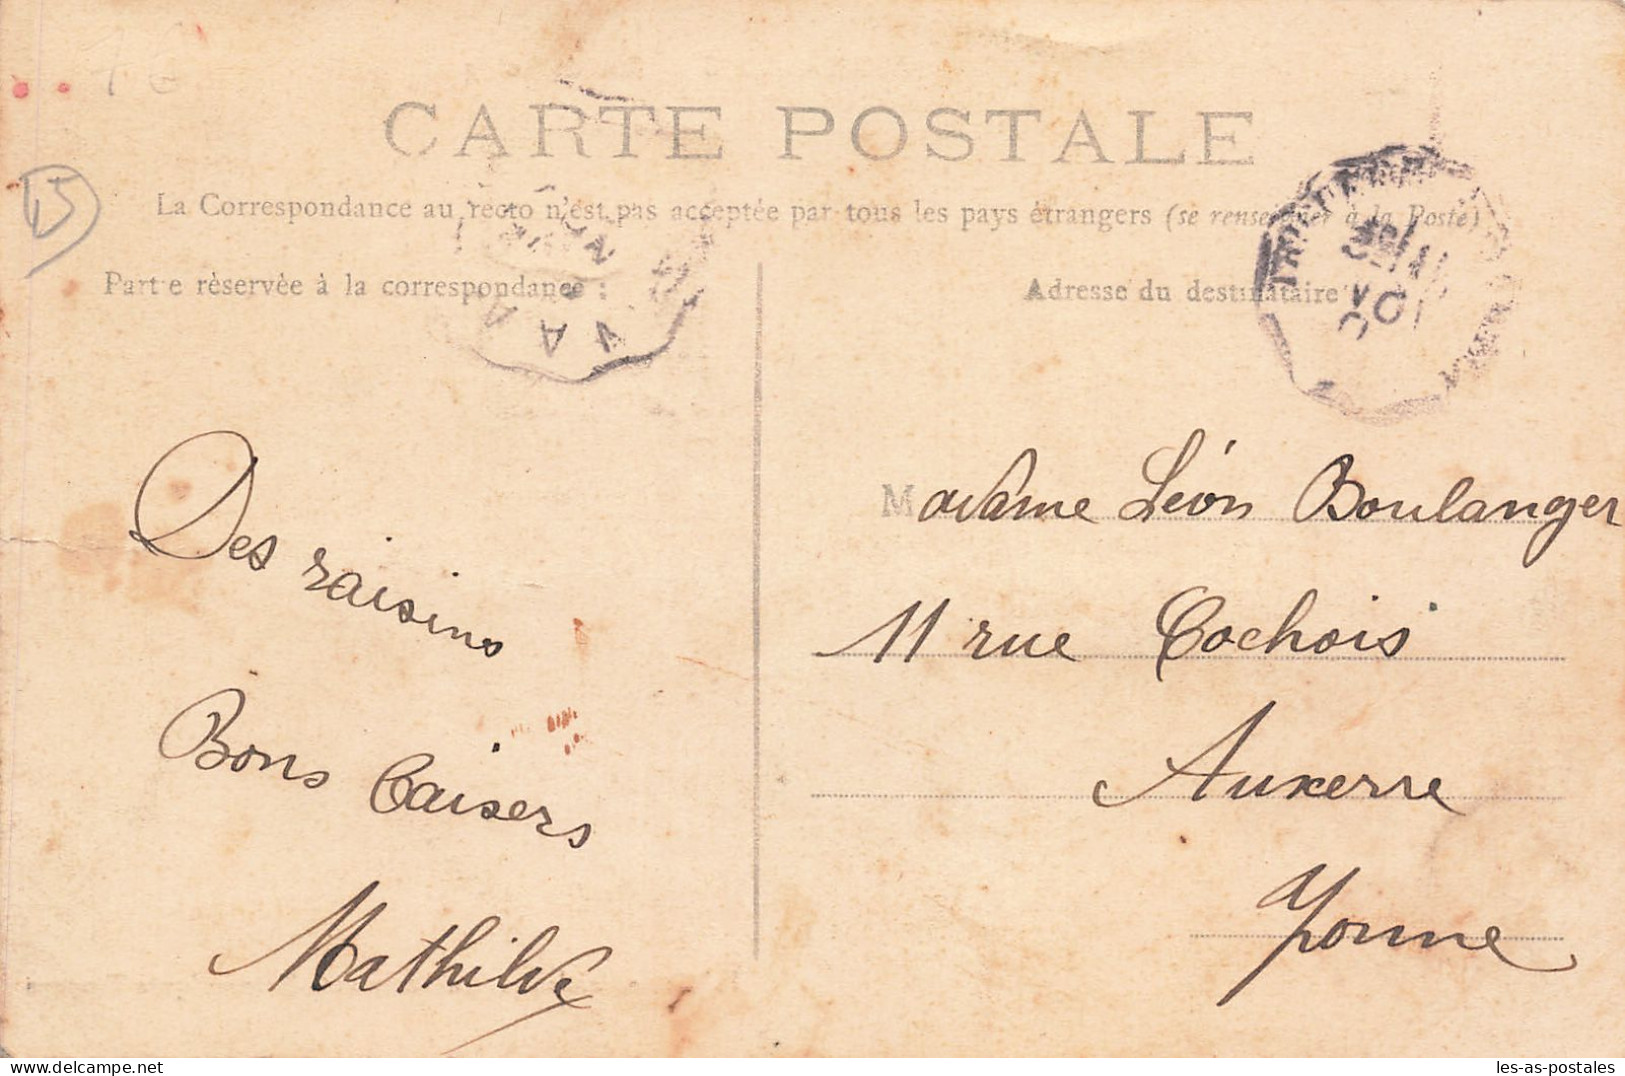 15
CARTE POSTALE
La Correspondance au recto n'est pas acceptée par tous les pays étrangers (se renseigner à la Poste)
Partie réservée à la correspondance :
Adresse du destinataire
Des raisins
Bons baisers
Mathilde
Madame Léon Boulanger
11 rue Cochois
Auxerre
Yonne
les-as-postales